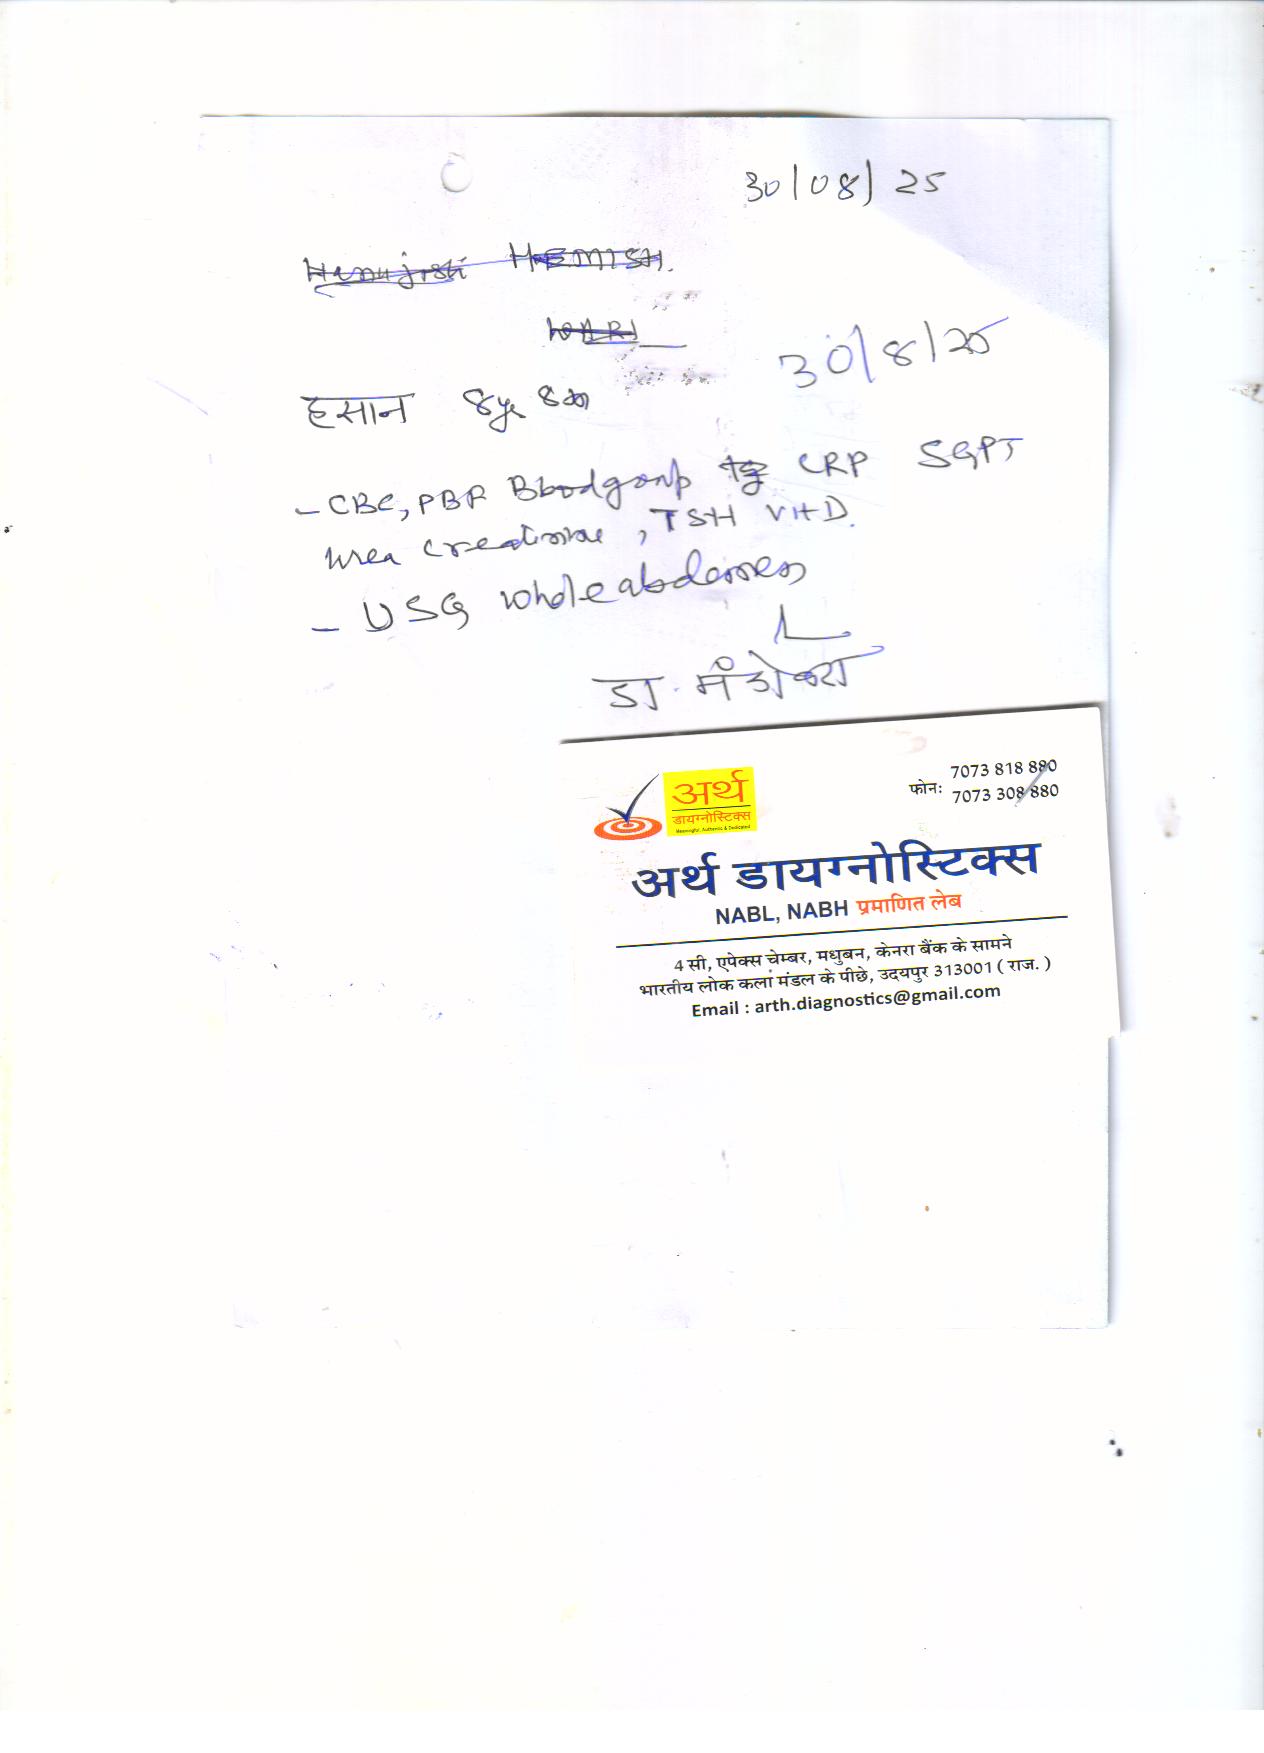 30/08/25
HEMISH.
30/8/25
हसान 8yr
- CBC, PBF Bloodgroup CRP SGPT
urea creatinine, TSH Vit D.
- USG whole abdomen
डा.
7073 818 880
फोनः
7073 308 880
अर्थ
डायग्नोस्टिक्स
Meaningful, Authentic & Dedicated
अर्थ डायग्नोस्टिक्स
NABL, NABH प्रमाणित लेब
4 सी, एपेक्स चेम्बर, मधुबन, केनरा बैंक के सामने
भारतीय लोक कलां मंडल के पीछे, उदयपुर 313001 ( राज. )
Email : arth.diagnostics@gmail.com